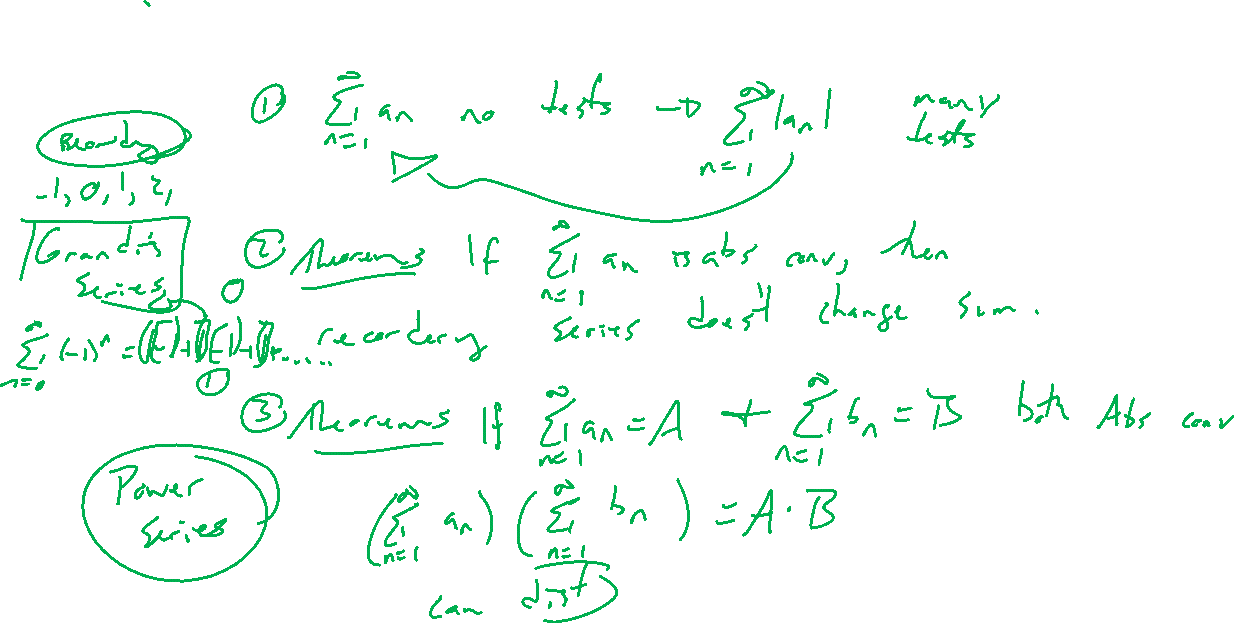 ① ∑_{n=1}^{∞} a_n no tests → ∑_{n=1}^{∞} |a_n| many tests
-1, 0, 1, 2,
Grandi's
Series
0
∑_{n=0}^{∞} (-1)^n =
1
② Theorems If ∑_{n=1}^{∞} a_n is abs conv, then
reordering series doesn't change sum.
③ Theorems If ∑_{n=1}^{∞} a_n = A + ∑_{n=1}^{∞} b_n = B both Abs conv
(∑_{n=1}^{∞} a_n) (∑_{n=1}^{∞} b_n) = A · B
can dist
Power
Series